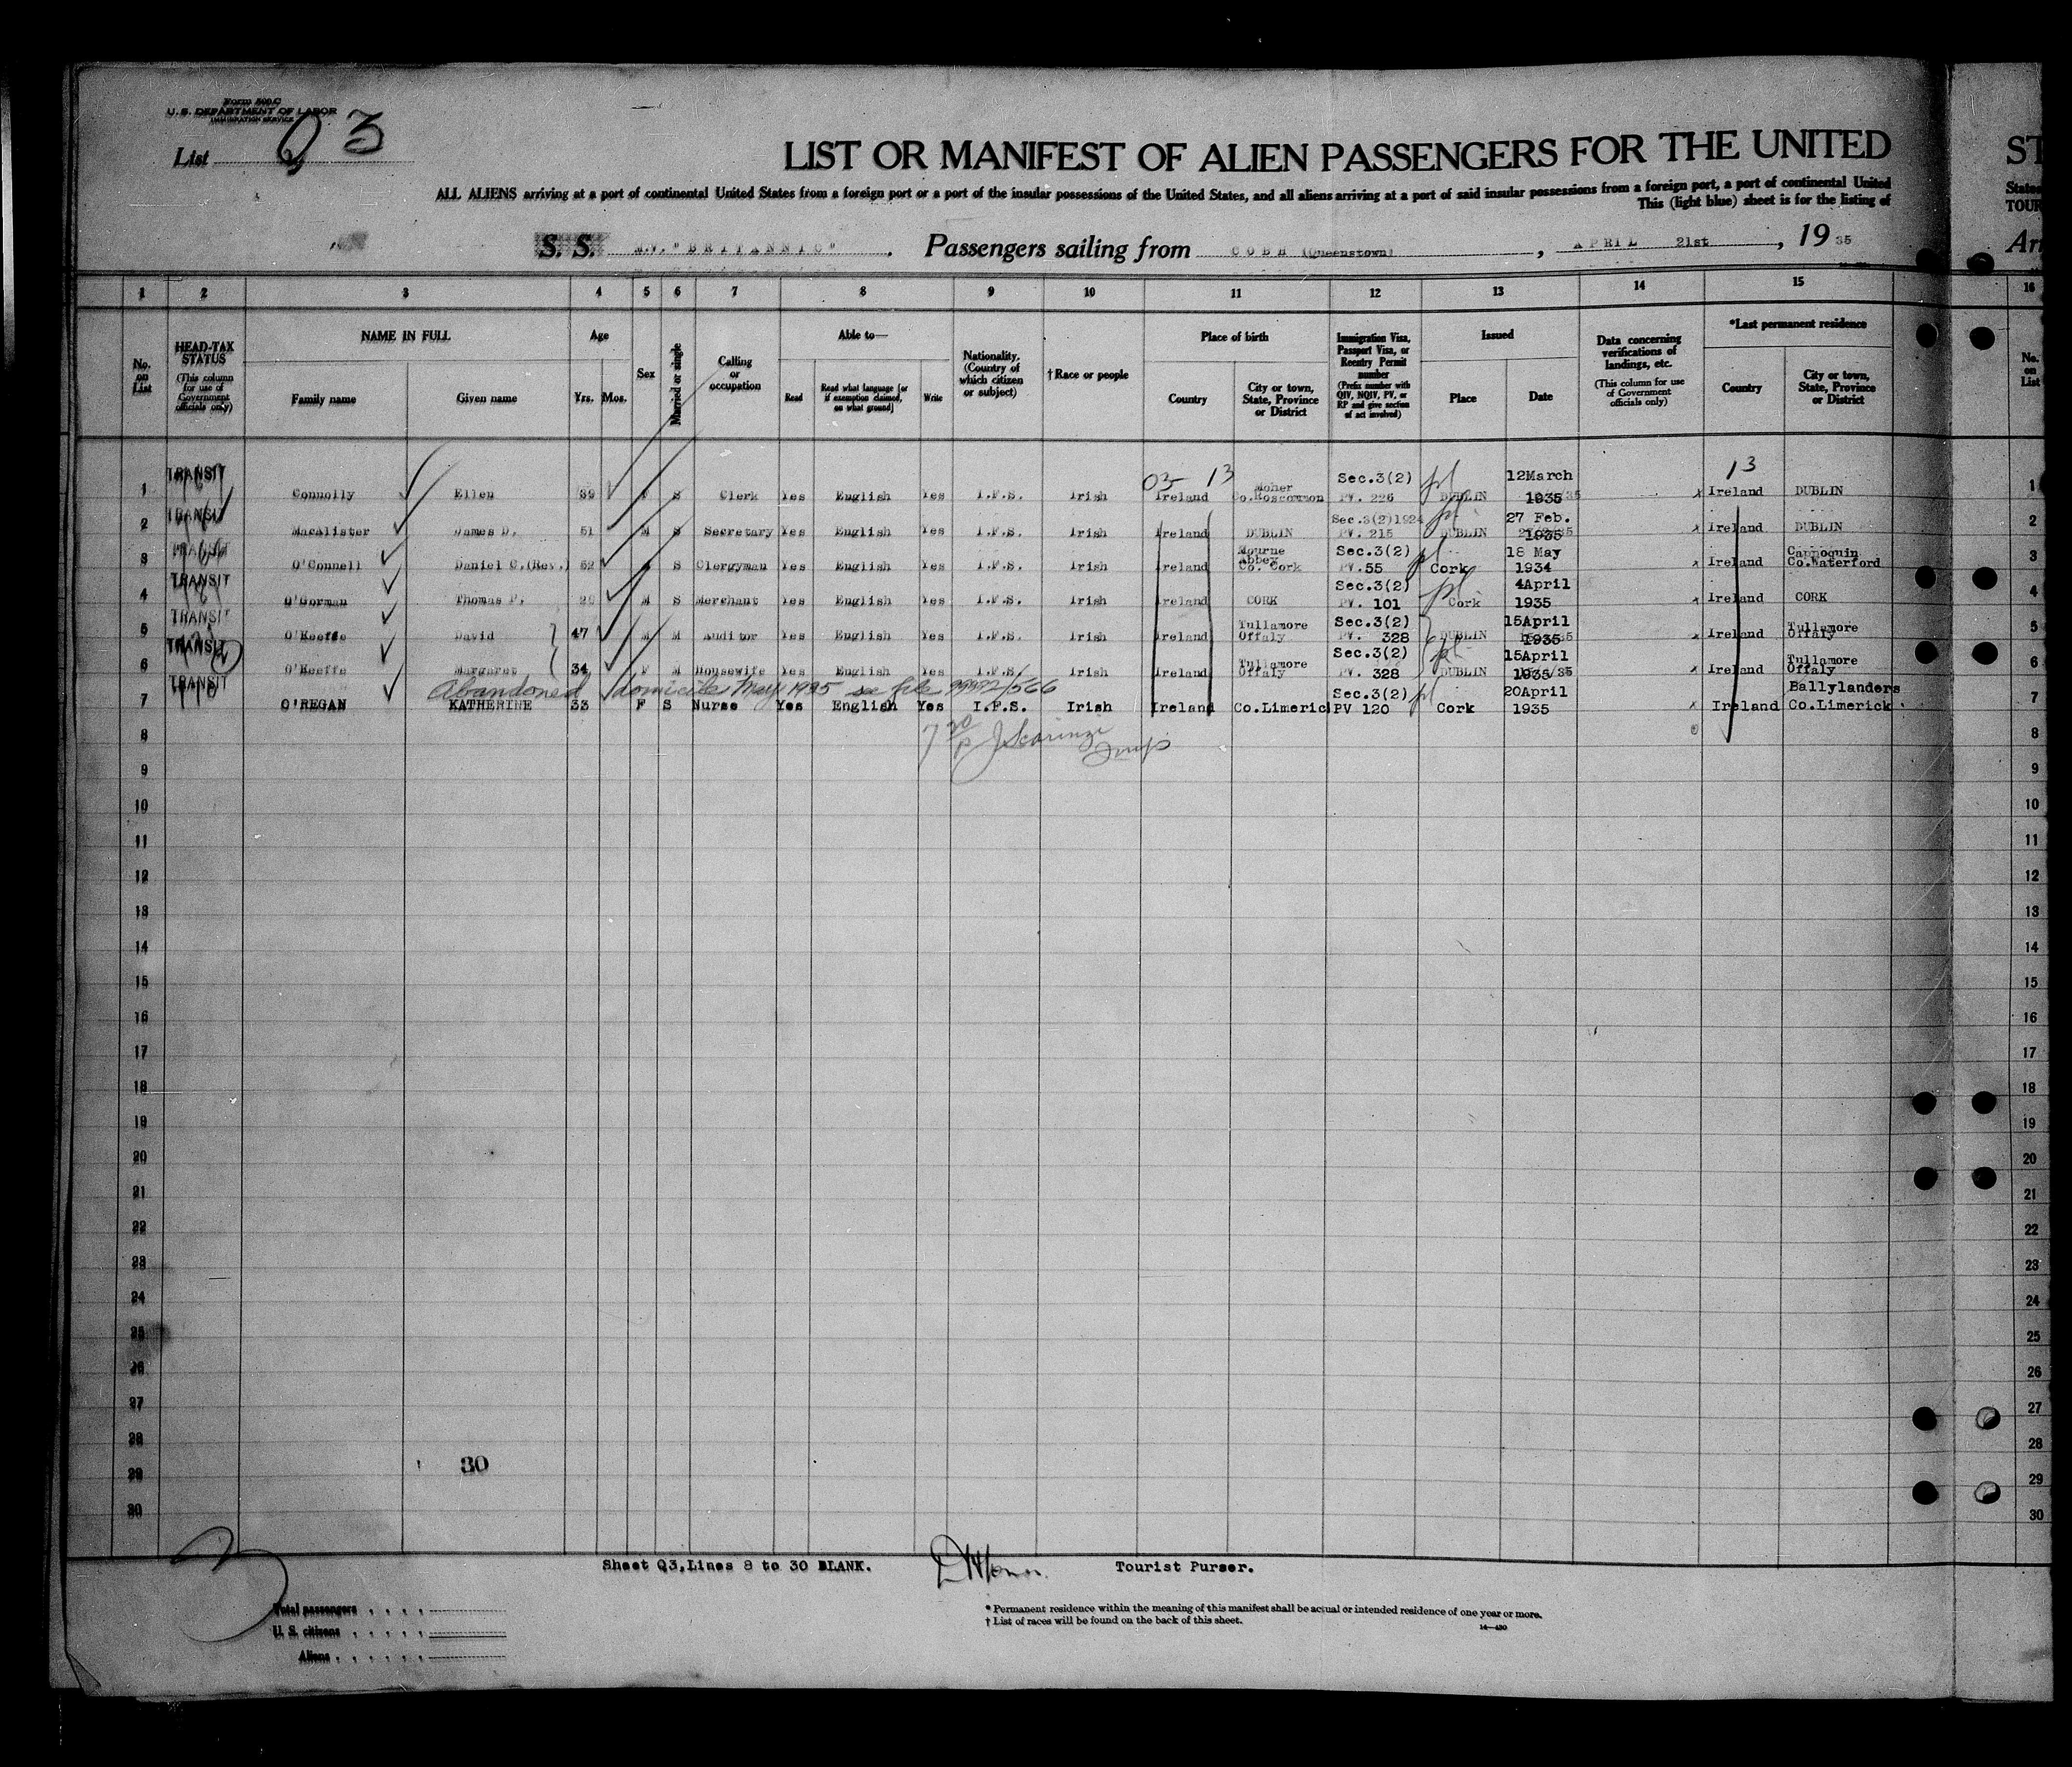 Form 500 C
U. S. DEPARTMENT OF LABOR
IMMIGRATION SERVICE
List Q 3
LIST OR MANIFEST OF ALIEN PASSENGERS FOR THE UNITED
ST
ALL ALIENS arriving at a port of continental United States from a foreign port or a port of the insular possessions of the United States, and all aliens arriving at a port of said insular possessions from a foreign port, a port of continental United
States
This (light blue) sheet is for the listing of
TOUR
S. S. M.V. "BRITANNIC". Passengers sailing from COBH (Queenstown), APRIL 21st, 19 35
Arr
1 2 3 4 5 6 7 8 9 10 11 12 13 14 15 16
No. on List
HEAD-TAX STATUS (This column for use of Government officials only)
NAME IN FULL
Family name
Given name
Age
Yrs. Mos.
Sex
Married or single
Calling or occupation
Able to—
Read
Read what language [or if exemption claimed, on what ground]
Write
Nationality. (Country of which citizen or subject)
† Race or people
Place of birth
Country
City or town, State, Province or District
Immigration Visa, Passport Visa, or Reentry Permit number (Prefix number with QIV, NQIV, PV, or RP and give section of act involved)
Issued
Place
Date
Data concerning verifications of landings, etc. (This column for use of Government officials only)
*Last permanent residence
Country
City or town, State, Province or District
No. on List
03 13 13
1 TRANSIT Connolly Ellen 39 F S Clerk Yes English Yes I.F.S. Irish Ireland Moher Co.Roscommon Sec.3(2) PV. 226 DUBLIN 12March 1935 x Ireland DUBLIN 1
2 TRANSIT MacAlister James D. 51 M S Secretary Yes English Yes I.F.S. Irish Ireland DUBLIN Sec.3(2)1924 PV. 215 DUBLIN 27 Feb. 1935 x Ireland DUBLIN 2
3 TRANSIT O'Connell Daniel C.(Rev.) 62 S Clergyman Yes English Yes I.F.S. Irish Ireland Mourne Abbey Co. Cork Sec.3(2) PV.55 Cork 18 May 1934 x Ireland Cappoquin Co.Waterford 3
4 TRANSIT O'Gorman Thomas P. M S Merchant Yes English Yes I.F.S. Irish Ireland CORK Sec.3(2) PV. 101 Cork 4April 1935 x Ireland CORK 4
5 TRANSIT O'Keeffe David 47 M M Auditor Yes English Yes I.F.S. Irish Ireland Tullamore Offaly Sec.3(2) PV. 328 DUBLIN 15April 1935 x Ireland Tullamore Offaly 5
6 TRANSIT O'Keeffe Margaret 34 F M Housewife Yes English Yes I.F.S. Irish Ireland Tullamore Offaly Sec.3(2) PV. 328 DUBLIN 15April 1935 x Ireland Tullamore Offaly 6
Abandoned domicile May 1935 see file 99972/566
7 TRANSIT O'REGAN KATHERINE 33 F S Nurse Yes English Yes I.F.S. Irish Ireland Co.Limerick Sec.3(2) PV 120 Cork 20April 1935 x Ireland Ballylanders Co.Limerick 7
8 8
J Scarinzi
9 9
10 10
11 11
12 12
13 13
14 14
15 15
16 16
17 17
18 18
19 19
20 20
21 21
22 22
23 23
24 24
25 25
26 26
27 27
28 28
29 30 29
30 30
Sheet Q3,Lines 8 to 30 BLANK. Tourist Purser.
Total passengers
U. S. citizens
Aliens
* Permanent residence within the meaning of this manifest shall be actual or intended residence of one year or more.
† List of races will be found on the back of this sheet.
14—430